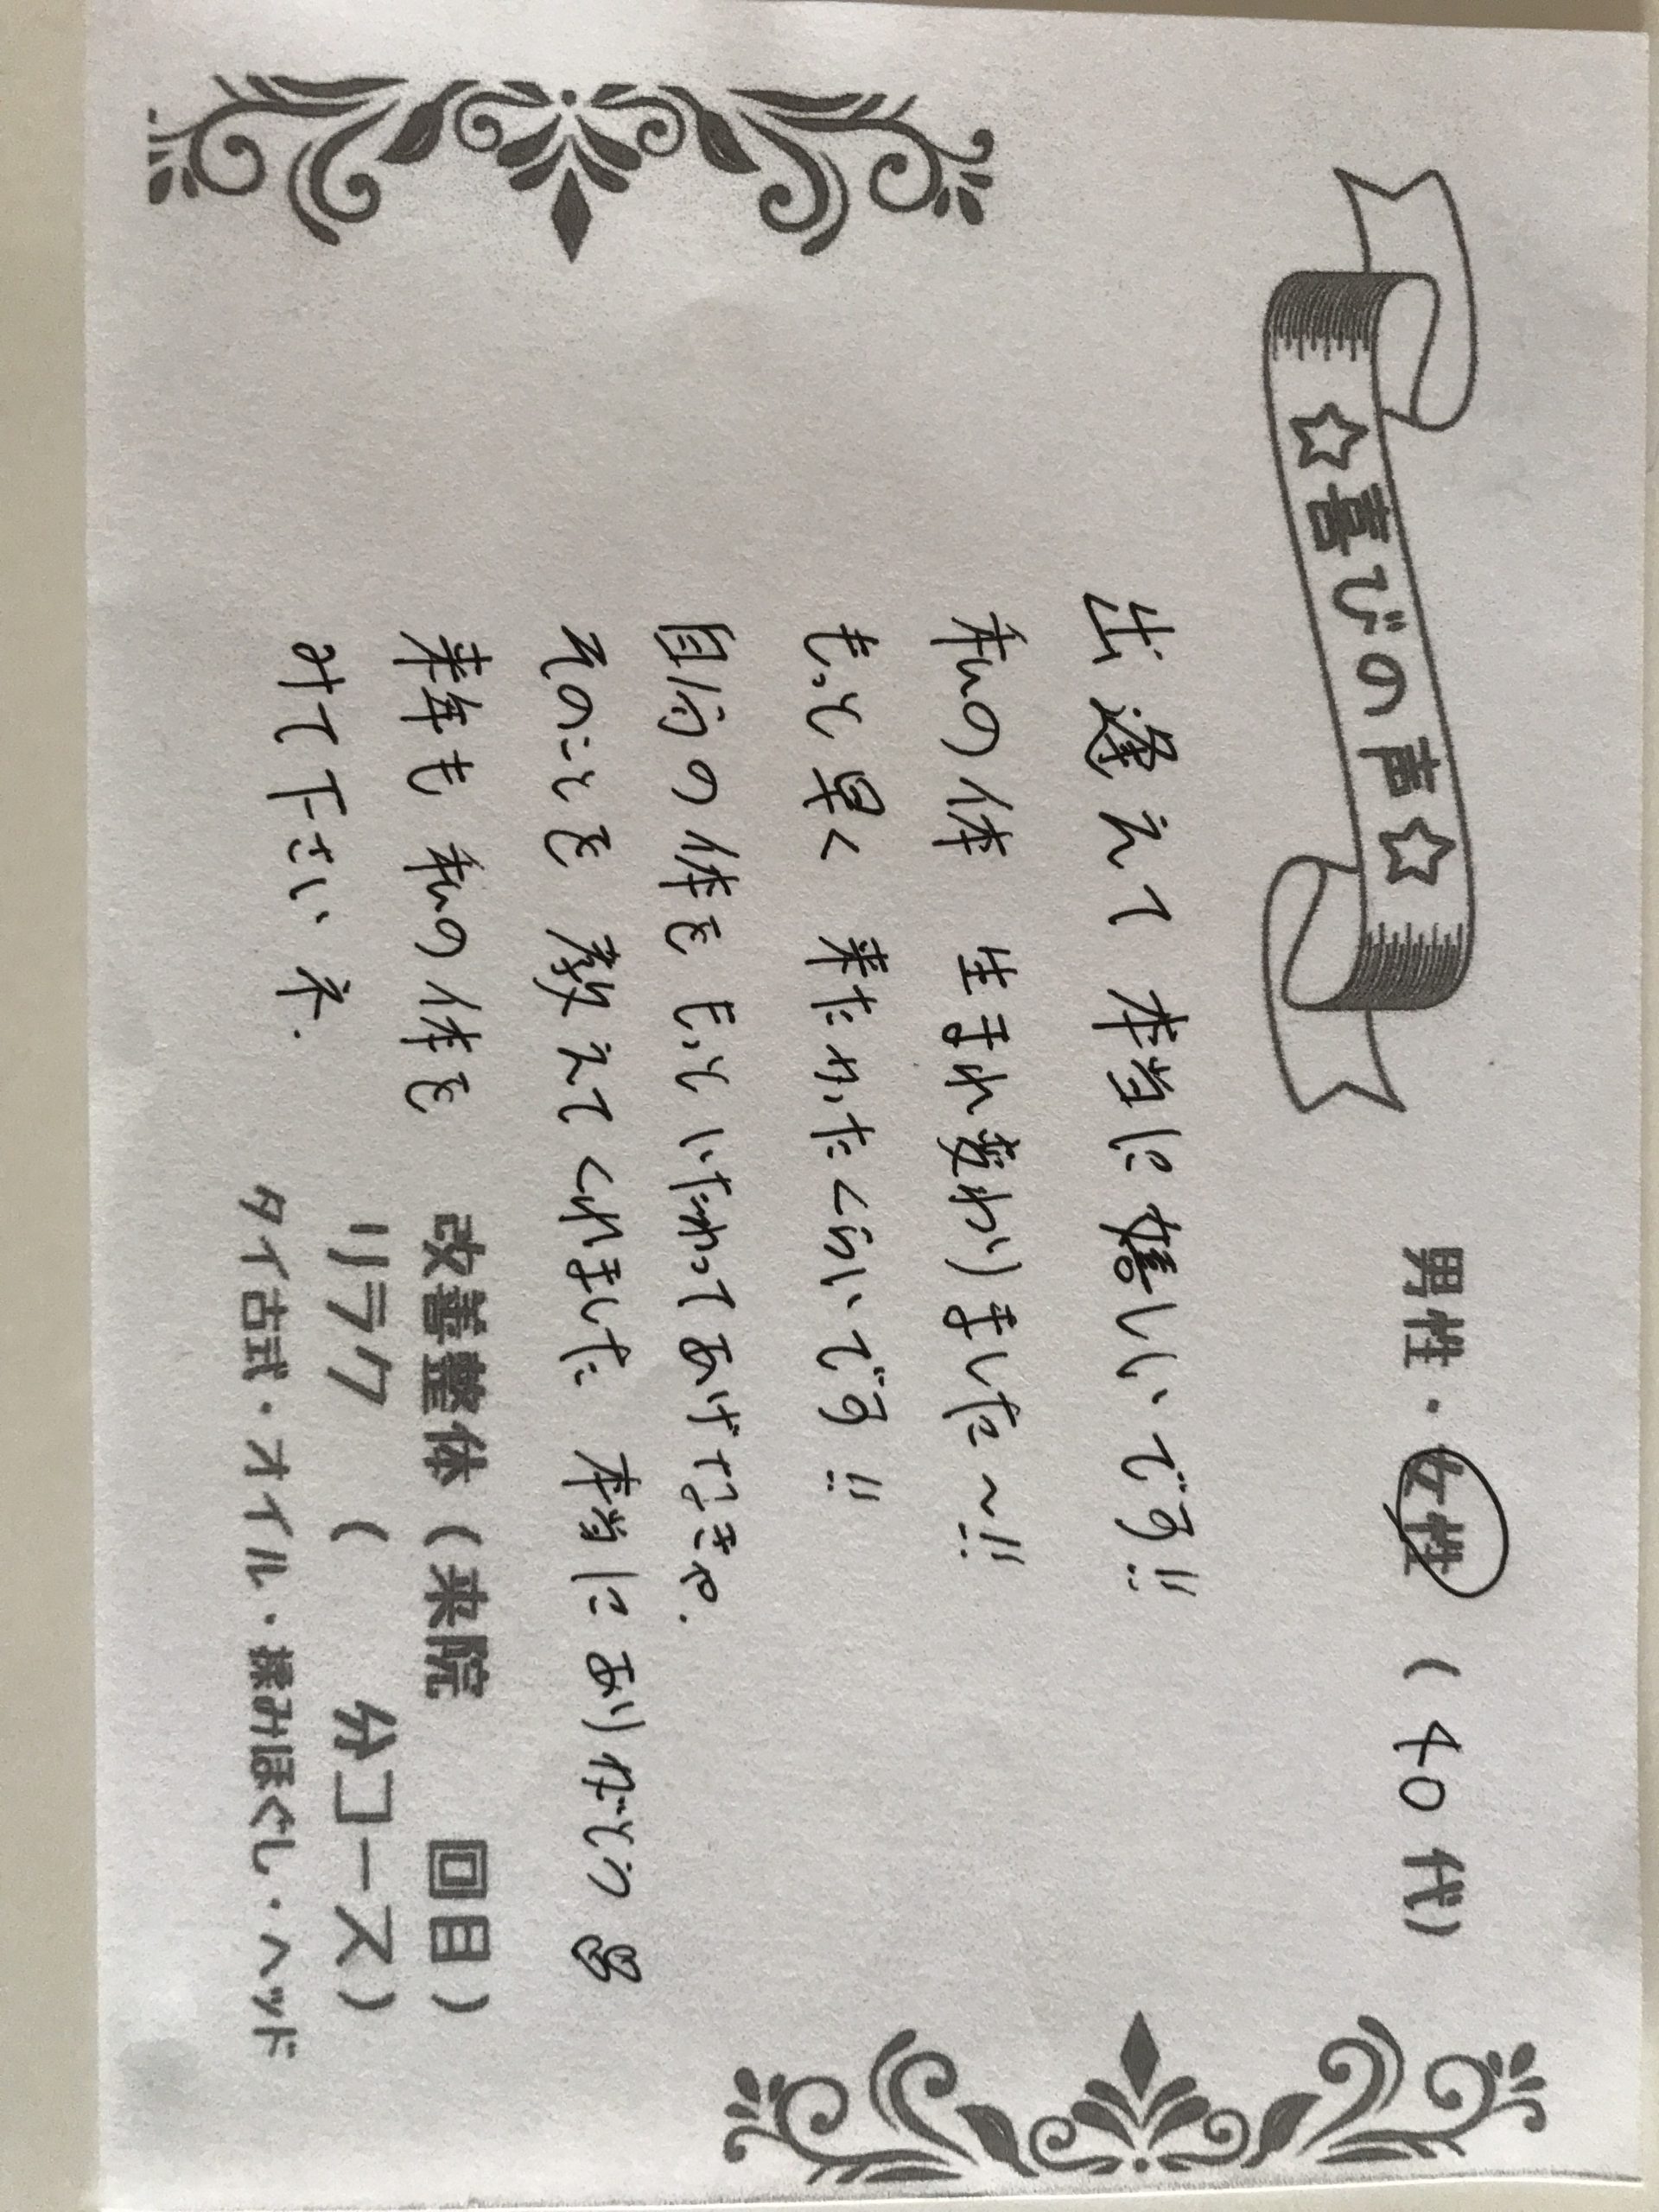 ☆喜びの声☆
男性・女性 (40代)
出逢えて 本当に嬉しいです!!
私の体 生まれ変わりました〜!!
もっと早く 来たかったくらいです!!
自分の体をもっといたわってあげなきゃ.
そのことを 教えてくれました 本当に ありがとう
来年も 私の体を
みて下さいネ.
改善整体 (来院 回目)
リラク ( 分コース)
タイ古式・オイル・揉みほぐし・ヘッド